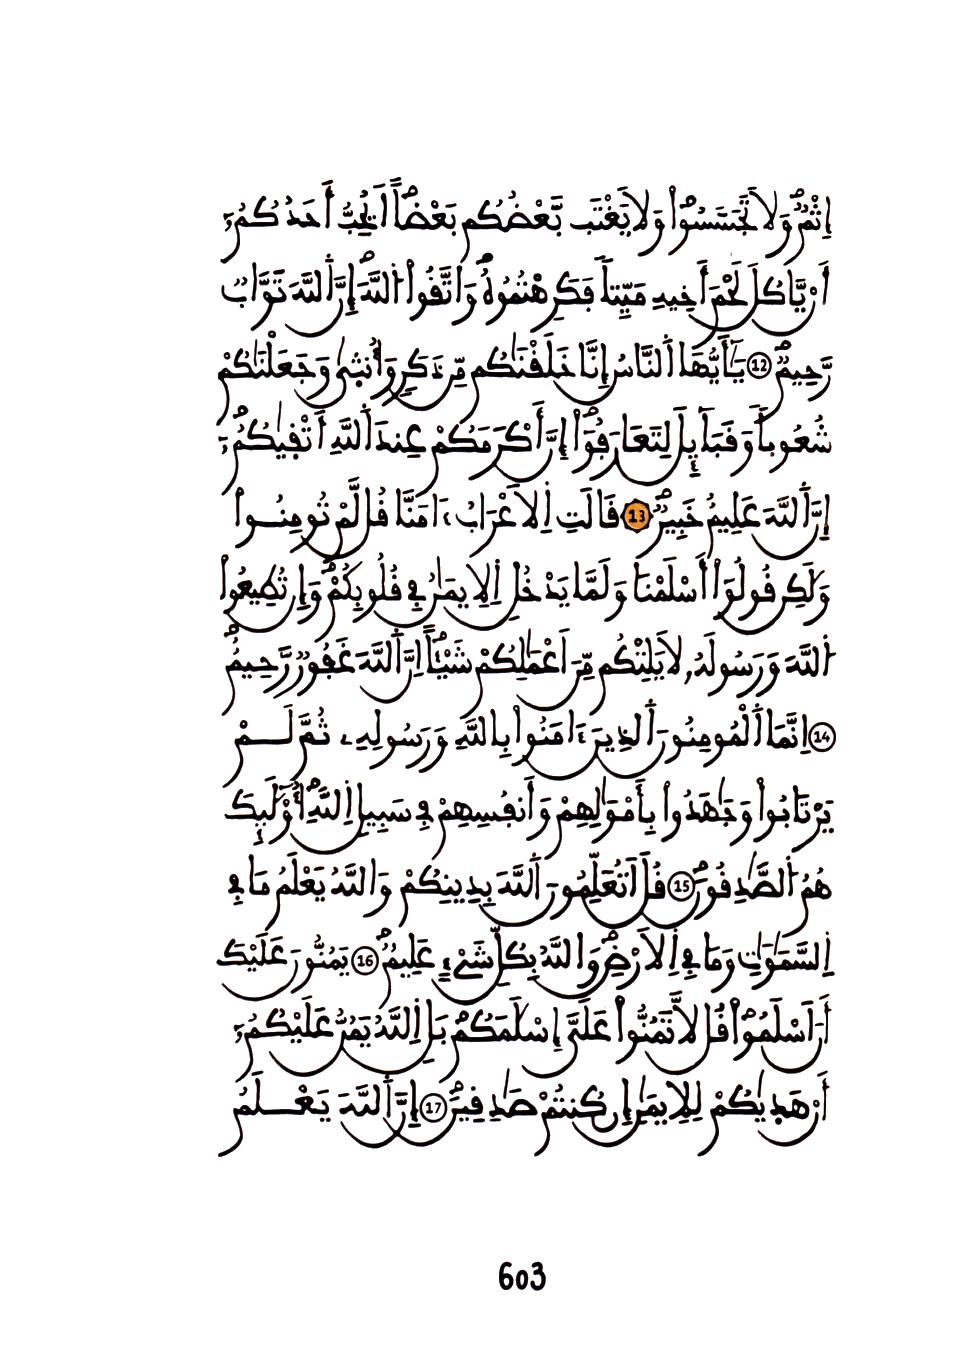 إِثْمٞۖ وَلَا تَجَسَّسُواْ وَلَا يَغْتَب بَّعْضُكُم بَعْضاًۖ اَيُحِبُّ أَحَدُكُمُۥٓ
أَنْ يَّاكُلَ لَحْمَ أَخِيهِ مَيِّتاٗ فَكَرِهْتُمُوهُۖ وَاتَّقُواْ اُ۬للَّهَۖ إِنَّ اَ۬للَّهَ تَوَّابٞ
رَّحِيمٞۖ 12 يَٰٓأَيُّهَا اَ۬لنَّاسُ إِنَّا خَلَقْنَٰكُم مِّن ذَكَرٖ وَأُنث۪يٰ وَجَعَلْنَٰكُمْ
شُعُوباٗ وَقَبَآئِلَ لِتَعَارَفُوٓاْۖ إِنَّ أَكْرَمَكُمْ عِندَ اَ۬للَّهِ أَتْق۪يٰكُمُۥٓۖ
إِنَّ اَ۬للَّهَ عَلِيمٌ خَبِيرٞۖ 13 قَالَتِ اِ۬لَاعْرَابُ ءَامَنَّا قُل لَّمْ تُومِنُواْ
وَلَٰكِن قُولُوٓاْ أَسْلَمْنَا وَلَمَّا يَدْخُلِ اِ۬لِايمَٰنُ فِے قُلُوبِكُمْۖ وَإِن تُطِيعُواْ
اُ۬للَّهَ وَرَسُولَهُۥ لَا يَلِتْكُم مِّنَ اَعْمَٰلِكُمْ شَيْـٔاًۖ اِنَّ اَ۬للَّهَ غَفُورٞ رَّحِيمٌۖ
14 اِنَّمَا اَ۬لْمُومِنُونَ اَ۬لذِينَ ءَامَنُواْ بِاللَّهِ وَرَسُولِهِۦ ثُمَّ لَمْ
يَرْتَابُواْ وَجَٰهَدُواْ بِأَمْوَٰلِهِمْ وَأَنفُسِهِمْ فِے سَبِيلِ اِ۬للَّهِۖ أُوْلَٰٓئِكَ
هُمُ اُ۬لصَّٰدِقُونَۖ 15 قُلَ اَتُعَلِّمُونَ اَ۬للَّهَ بِدِينِكُمْ وَاللَّهُ يَعْلَمُ مَا فِے
اِ۬لسَّمَٰوَٰتِ وَمَا فِے اِ۬لَارْضِۖ وَاللَّهُ بِكُلِّ شَےْءٍ عَلِيمٞۖ 16 يَمُنُّونَ عَلَيْكَ
أَنَ اَسْلَمُواْۖ قُل لَّا تَمُنُّواْ عَلَيَّ إِسْلَٰمَكُمۖ بَلِ اِ۬للَّهُ يَمُنُّ عَلَيْكُمُۥٓ
أَنْ هَد۪يٰكُمْ لِلِايمَٰنِ إِن كُنتُمْ صَٰدِقِينَۖ 17 إِنَّ اَ۬للَّهَ يَعْلَمُ
603